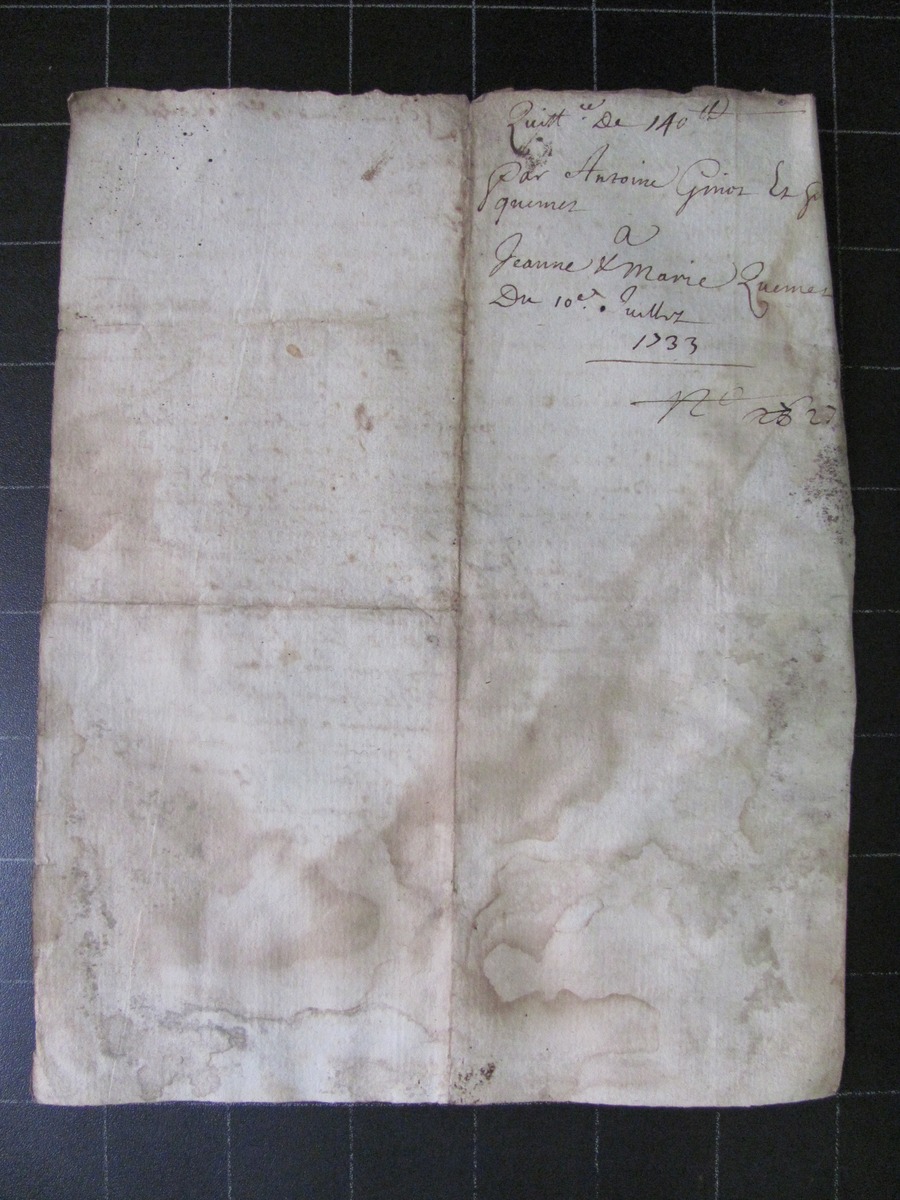 Quitt.ce De 140 tt
par Antoine Ginot Et
quemet
a
Jeanne & Marie Quemet
Du 10er. Juillet
1733
N°